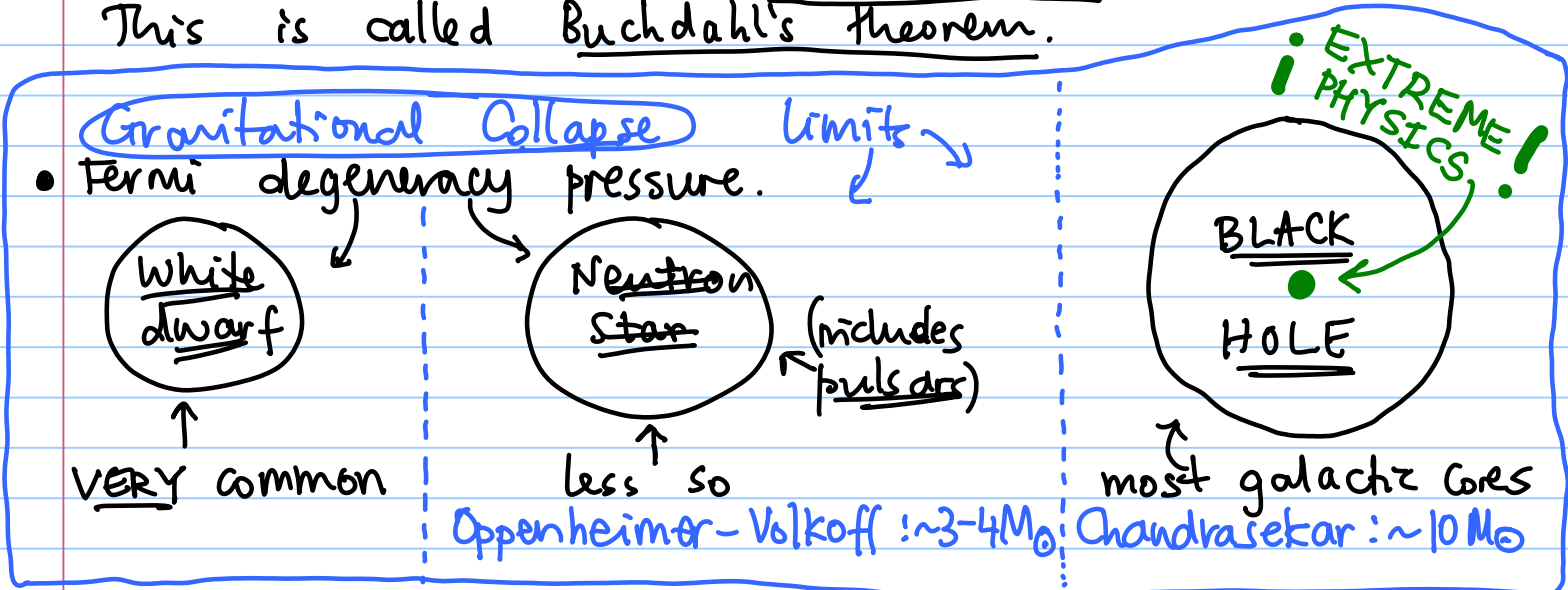 This is called Buchdahl's theorem.
Gravitational Collapse limits
! EXTREME PHYSICS !
• Fermi degeneracy pressure.
White
dwarf
Neutron
Star
(includes
pulsars)
BLACK
HOLE
VERY common
less so
most galactic cores
Oppenheimer-Volkoff :~3-4M☉
Chandrasekar : ~10 M☉